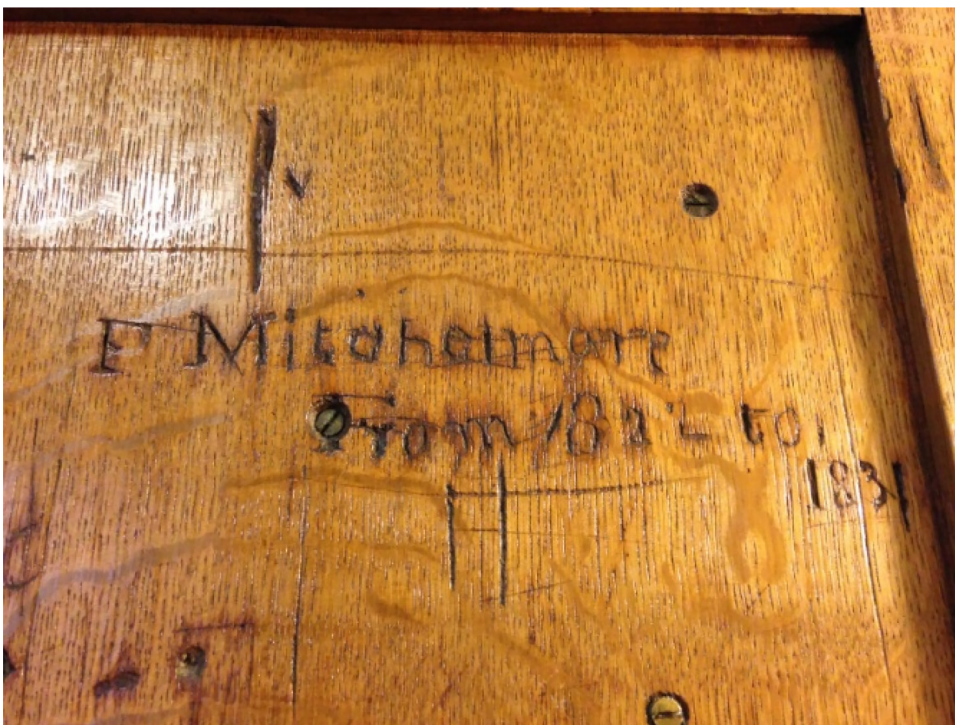 F Mitchelmore
From to
1831